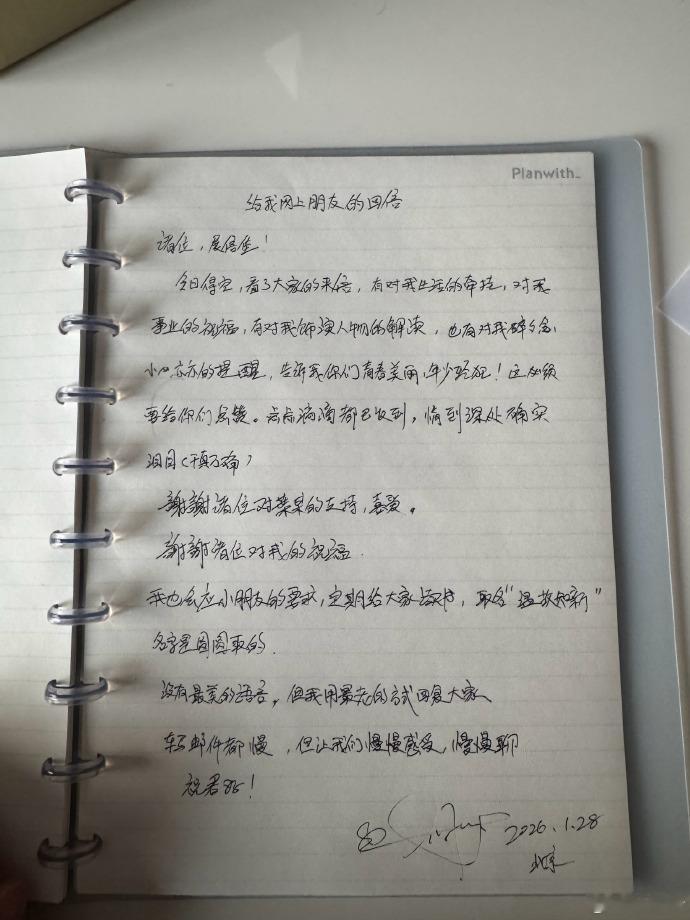 Planwith_
给我网上朋友的回信
诸位,展信佳!
今日得空,看了大家的来信,有对我生活的牵挂,对我
事业的祝福,有对我饰演人物的解读,也有对我碎碎念,
小心的提醒,告诉我你们青春美丽,年少轻狂!这必须
要给你们点赞。点点滴滴都已收到,情到深处确实
泪目(千真万确)
謝謝诸位对某某的支持,喜爱。
謝謝诸位对我的祝福.
我也会应小朋友的要求,定期给大家,取名“温故知新”
名字是圆圆取的.
没有最美的语言,但我用最老的方式回复大家
车马邮件都慢,但让我们慢慢感受,慢慢聊
祝君好!
2026.1.28
北京